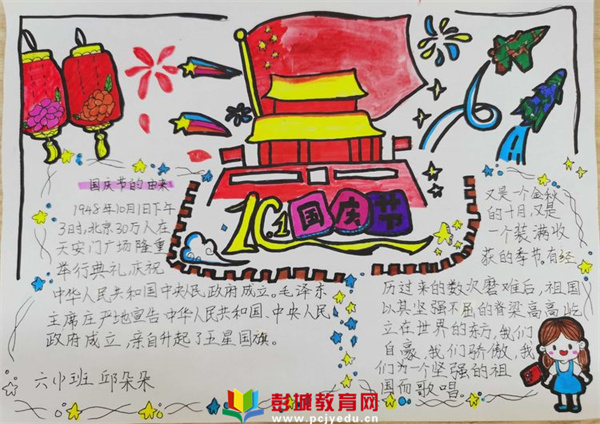 10.1国庆节
国庆节的由来
1948年10月1日下午
3时,北京30万人在
天安门广场隆重
举行典礼,庆祝
中华人民共和国中央人民政府成立。毛泽东
主席庄严地宣告中华人民共和国、中央人民
政府成立,亲自升起了五星国旗。
六小班 邱朵朵
又是一个金秋
的十月,又是
一个装满收
获的季节。有经
历过来的数次磨难后,祖国
以其坚强不屈的脊梁高高屹
立在世界的东方,我们
自豪,我们骄傲,我
们为一个坚强的祖
国而歌唱。
彭城教育网
www.pcjyedu.cn